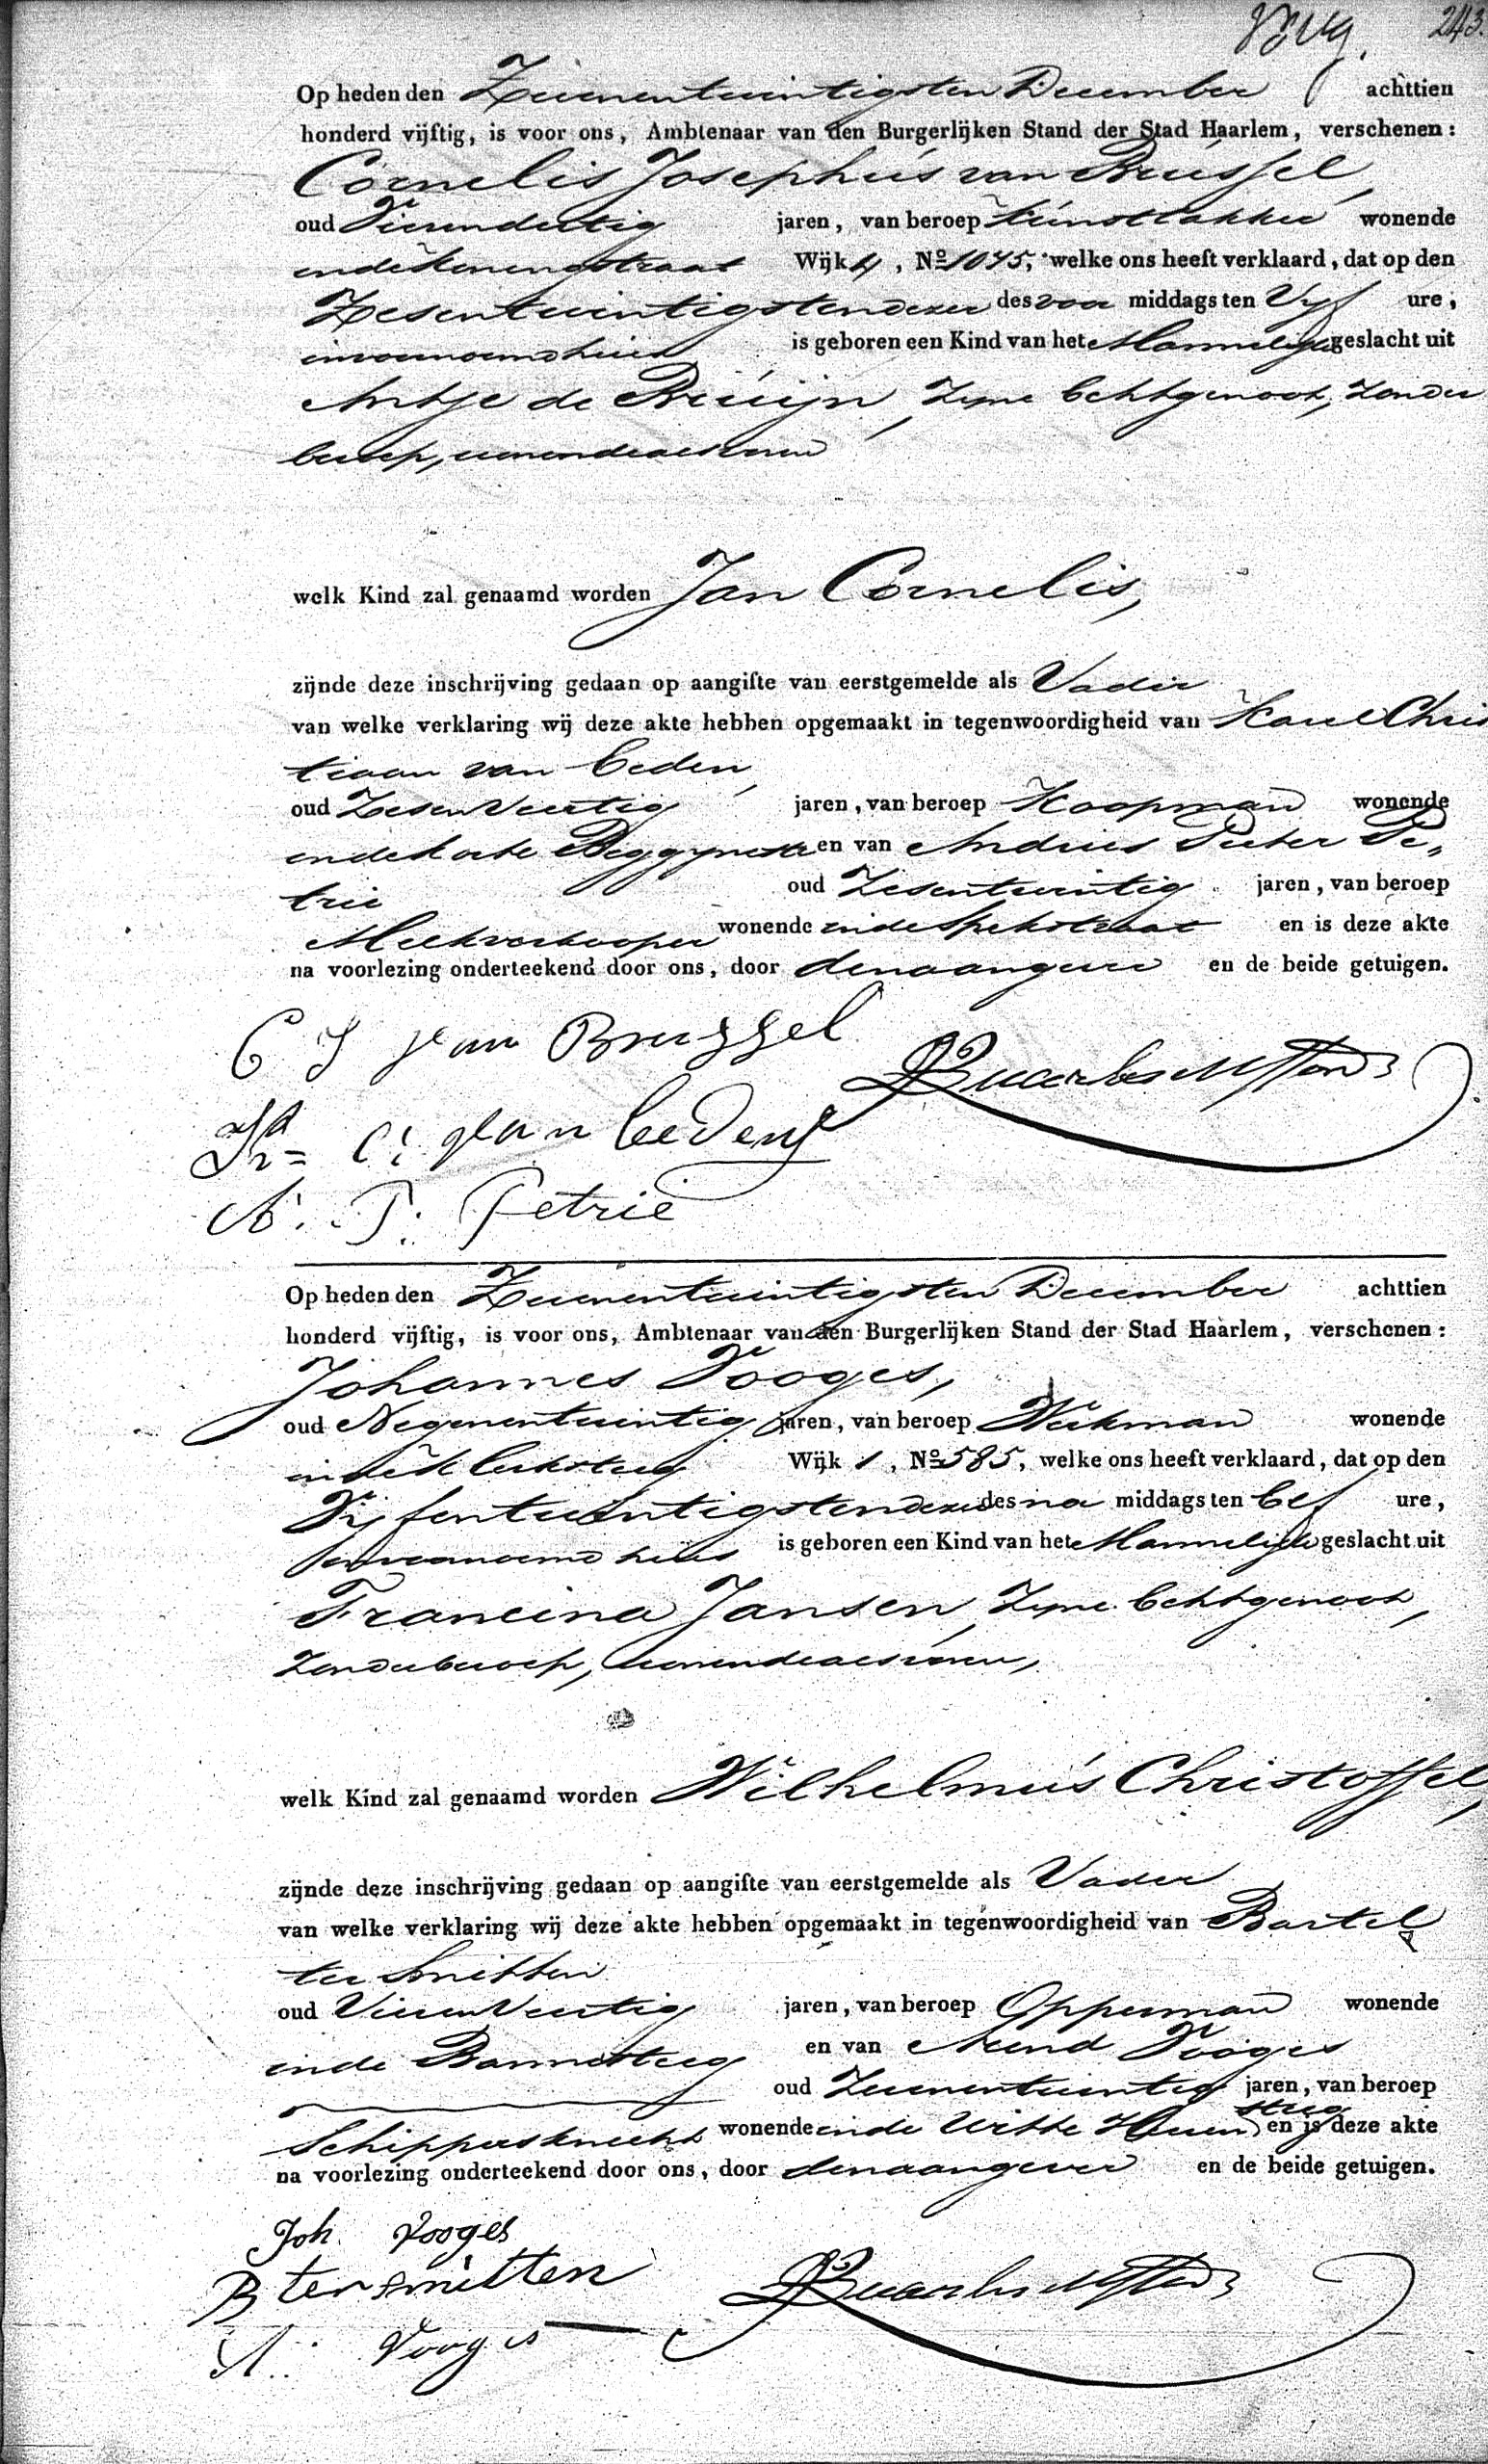 243.
Op heden den Zevenentwintigsten December achttien
honderd vijftig, is voor ons, Ambtenaar van den Burgerlijken Stand der Stad Haarlem, verschenen:
Cornelis Josephus van Brussel,
oud Vierendertig jaren, van beroep Kunstlakker wonende
in de Koningstraat Wijk 4, No 1045, welke ons heeft verklaard, dat op den
Zesentwintigsten dezer des voor middags ten Vijf ure,
in voornoemd huis is geboren een Kind van het Mannelijk geslacht uit
Antje de Bruijn, Zijne Echtgenoot, Zonder
beroep, wonende als voren
welk Kind zal genaamd worden Jan Cornelis,
zijnde deze inschrijving gedaan op aangifte van eerstgemelde als Vader
van welke verklaring wij deze akte hebben opgemaakt in tegenwoordigheid van Karel Chris
tiaan van Eeden,
oud Zesenveertig jaren, van beroep Koopman wonende
in de korte Beggijnestr en van Andries Pieter Pe„
trie oud Zesentwintig jaren, van beroep
Melkverkooper wonende in de Spekstraat en is deze akte
na voorlezing onderteekend door ons, door den aangever en de beide getuigen.
C J van Brussel
C: van Eeden
A. P. Petrie
Op heden den Zevenentwintigsten December achttien
honderd vijftig, is voor ons, Ambtenaar van den Burgerlijken Stand der Stad Haarlem, verschenen:
Johannes Vooges,
oud Negenentwintig jaren, van beroep Werkman wonende
in de Kerksteeg Wijk 1, No 585, welke ons heeft verklaard, dat op den
Vijfentwintigsten dezer des na middags ten Elf ure,
in voornoemd huis is geboren een Kind van het Mannelijk geslacht uit
Francina Jansen, Zijne Echtgenoot,
Zonder beroep, wonende als voren,
welk Kind zal genaamd worden Wilhelmus Christoffel,
zijnde deze inschrijving gedaan op aangifte van eerstgemelde als Vader
van welke verklaring wij deze akte hebben opgemaakt in tegenwoordigheid van Bartel
ter Smitten
oud Vierenveertig jaren, van beroep Opperman wonende
in de Bannesteeg en van Arend Vooges
oud Zevenentwintig jaren, van beroep
Schippersknecht wonende in de Witte Heeren steeg en is deze akte
na voorlezing onderteekend door ons, door den aangever en de beide getuigen.
Joh. Vooges
B ter Smitten
A. Vooges